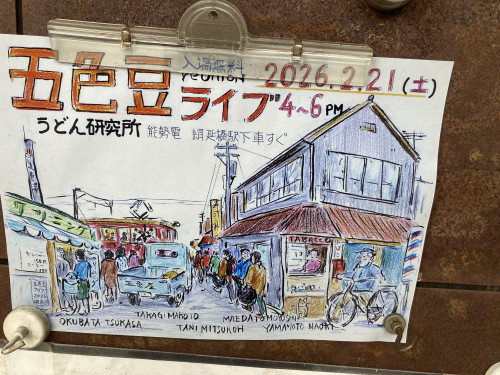 入場無料
五色豆 REUNION 2026.2.21(土)
ライブ 4~6 PM
うどん研究所 能勢電 絹延橋駅下車すぐ
TABACCO
五色豆
TAKAGI MAKOTO MAEDA TOMOYOSHI
OKUBATA TSUKASA TANI MITSUROH YAMAMOTO NAOKI